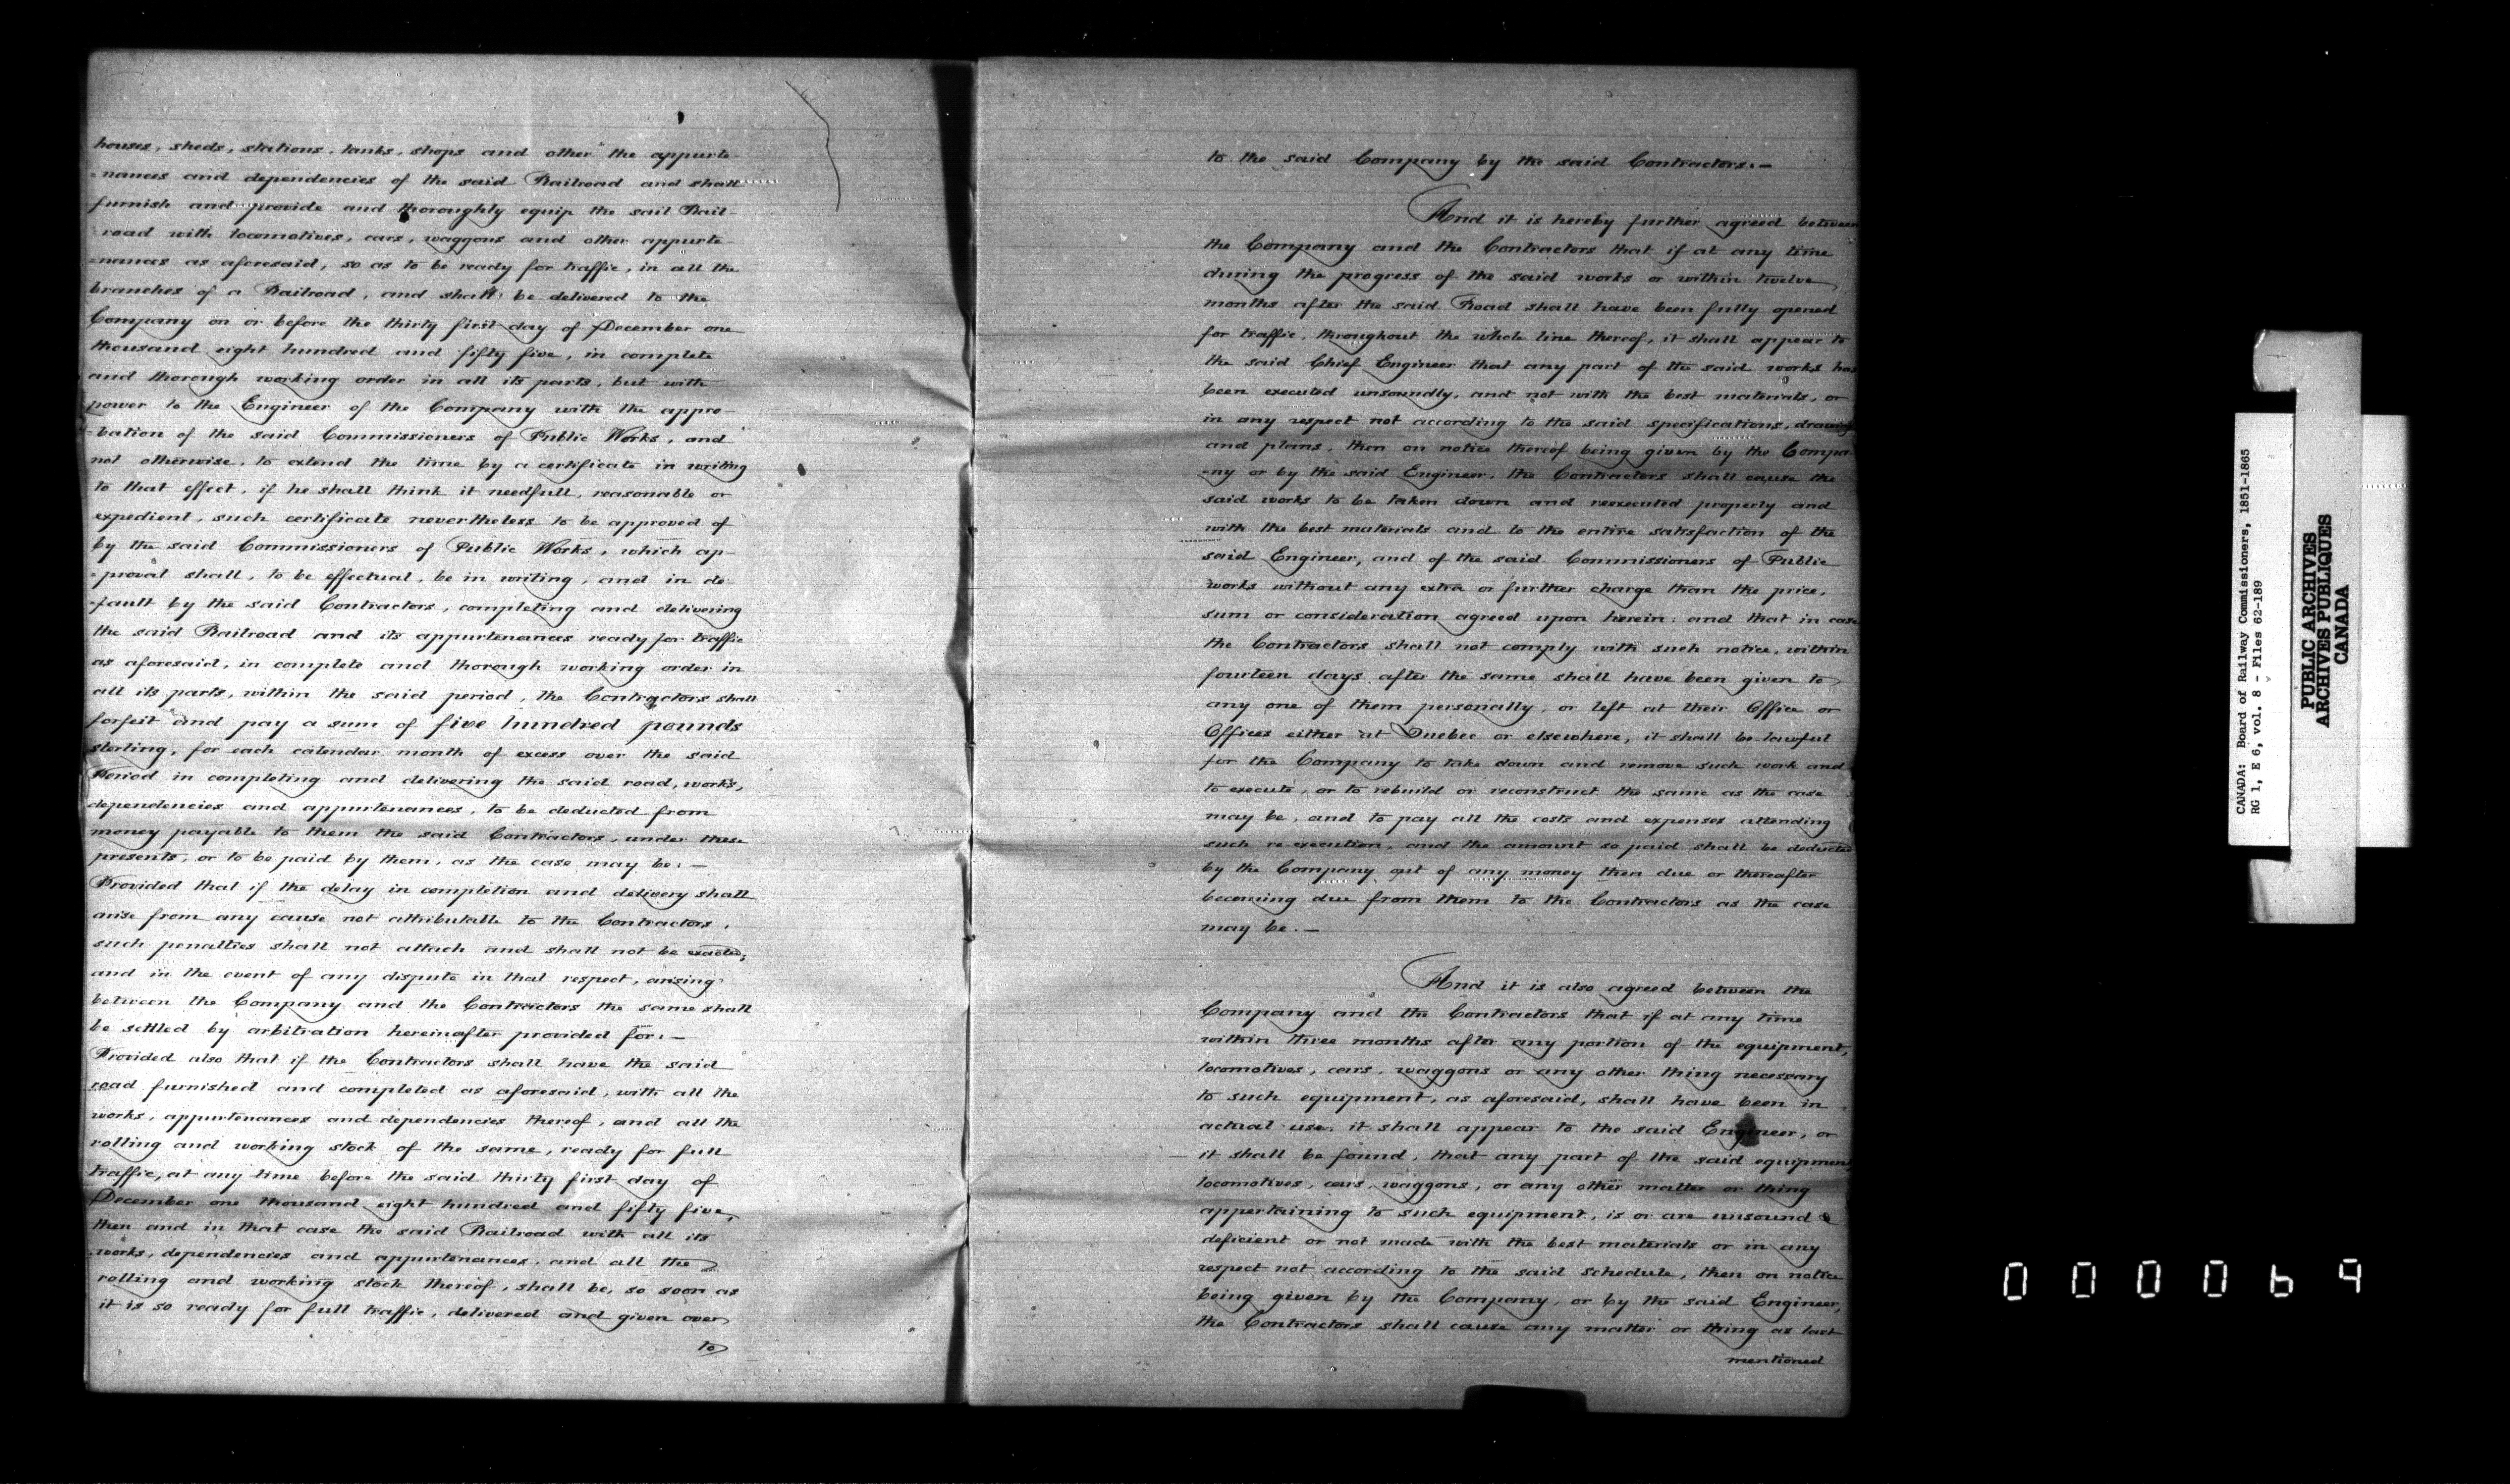 houses, sheds, stations, tanks, shops and other the appurte-
=nances and dependencies of the said Railroad and shall
furnish and provide and thoroughly equip the said Rail-
road with locomotives, cars, waggons and other appurte-
=nances as aforesaid, so as to be ready for traffic, in all the
branches of a Railroad, and shall be delivered to the
Company on or before the thirty first day of December one
thousand eight hundred and fifty five, in complete
and thorough working order in all its parts, but with
power to the Engineer of the Company with the appro-
=bation of the said Commissioners of Public Works, and
not otherwise, to extend the time by a certificate in writing
to that effect, if he shall think it needfull, reasonable or
expedient, such certificate nevertheless to be approved of
by the said Commissioners of Public Works, which ap-
=proval shall, to be effectual, be in writing, and in de-
=fault by the said Contractors, completing and delivering
the said Railroad and its appurtenances ready for traffic
as aforesaid, in complete and thorough working order in
all its parts, within the said period, the Contractors shall
forfeit and pay a sum of five hundred pounds
sterling, for each calendar month of excess over the said
Period in completing and delivering the said road, works,
dependencies and appurtenances, to be deducted from
money payable to them the said Contractors, under these
presents, or to be paid by them, as the case may be: —
Provided that if the delay in completion and delivery shall
arise from any cause not attributable to the Contractors,
such penalties shall not attach and shall not be exacted;
and in the event of any dispute in that respect, arising
between the Company and the Contractors the same shall
be settled by arbitration hereinafter provided for: —
Provided also that if the Contractors shall have the said
road furnished and completed as aforesaid, with all the
works, appurtenances and dependencies thereof, and all the
rolling and working stock of the same, ready for full
traffic, at any time before the said thirty first day of
December one thousand eight hundred and fifty five,
then and in that case the said Railroad with all its
works, dependencies and appurtenances, and all the
rolling and working stock thereof, shall be, so soon as
it is so ready for full traffic, delivered and given over
to
to the said Company by the said Contractors. —
And it is hereby further agreed between
the Company and the Contractors that if at any time
during the progress of the said works or within twelve
months after the said Road shall have been fully opened
for traffic, throughout the whole line thereof, it shall appear to
the said Chief Engineer that any part of the said works has
been executed unsoundly, and not with the best materials, or
in any respect not according to the said specifications, drawings
and plans, then on notice thereof being given by the Compa-
=ny or by the said Engineer, the Contractors shall cause the
said works to be taken down and reexecuted properly and
with the best materials and to the entire satisfaction of the
said Engineer, and of the said Commissioners of Public
works without any extra or further charge than the price,
sum or consideration agreed upon herein: and that in case
the Contractors shall not comply with such notice, within
fourteen days after the same shall have been given to
any one of them personally, or left at their Office or
Offices either at Quebec or elsewhere, it shall be lawful
for the Company to take down and remove such work and
to execute, or to rebuild or reconstruct the same as the case
may be, and to pay all the costs and expenses attending
such re-execution, and the amount so paid shall be deducted
by the Company out of any money then due or thereafter
becoming due from them to the Contractors as the case
may be. —
And it is also agreed between the
Company and the Contractors that if at any time
within three months after any portion of the equipment,
locomotives, cars, waggons or any other thing necessary
to such equipment, as aforesaid, shall have been in
actual use, it shall appear to the said Engineer, or
it shall be found, that any part of the said equipment
locomotives, cars, waggons, or any other matter or thing
appertaining to such equipment, is or are unsound &
deficient or not made with the best materials or in any
respect not according to the said schedule, then on notice
being given by the Company, or by the said Engineer,
the Contractors shall cause any matter or thing as last
mentioned
CANADA: Board of Railway Commissioners, 1851-1865
RG 1, E 6, vol. 8 - Files 62-189
PUBLIC ARCHIVES
ARCHIVES PUBLIQUES
CANADA
000069